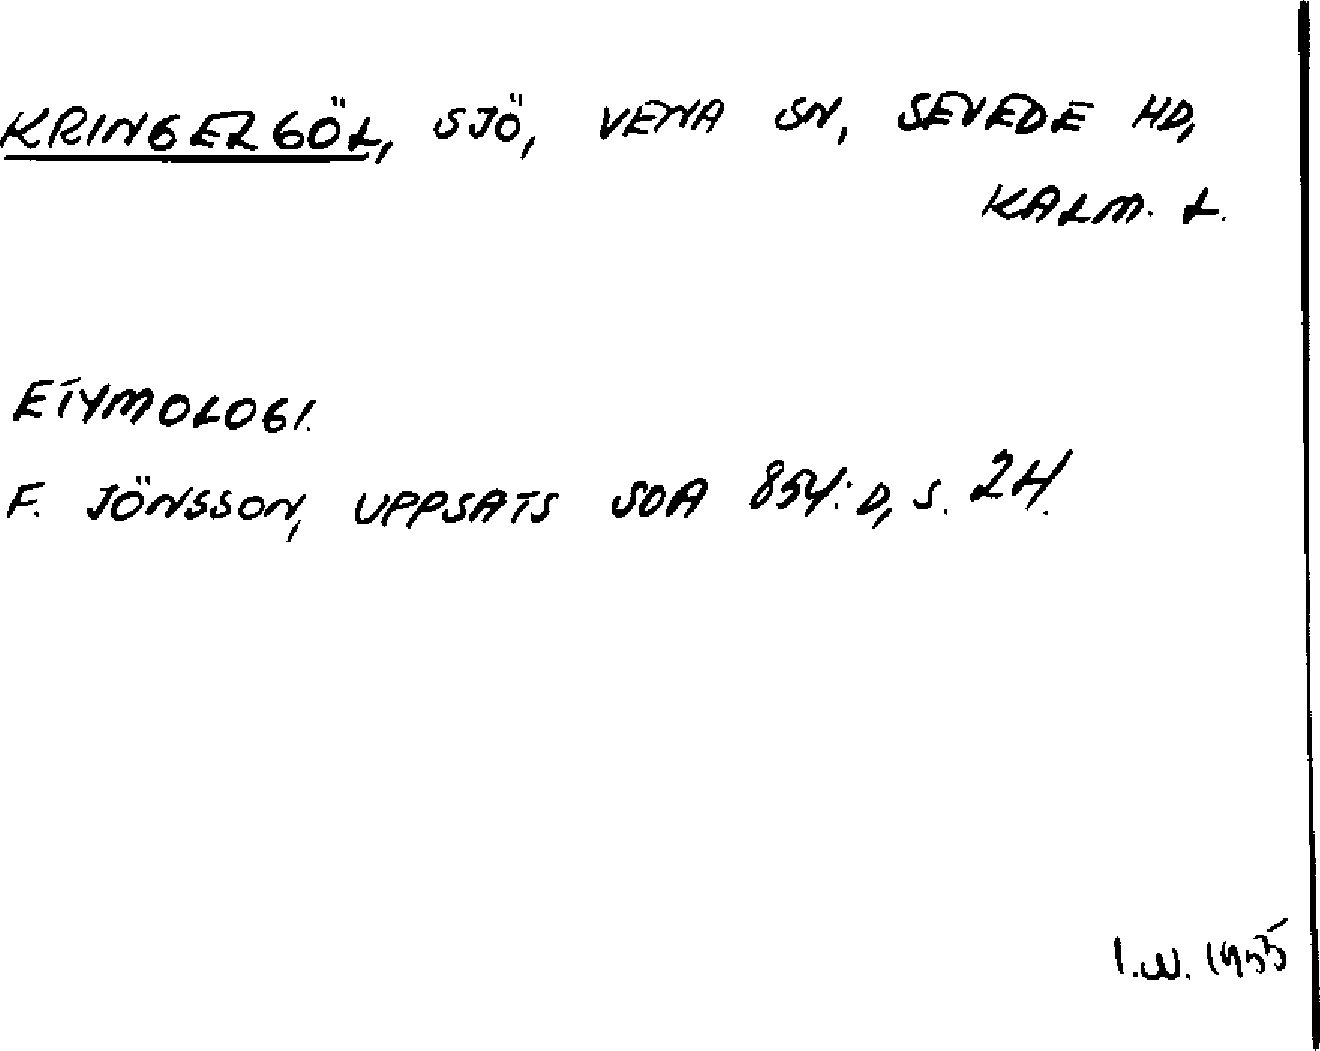 KRINGELGÖL, SJÖ, VENA SN, SEVEDE HD,
KALM. L.
ETYMOLOGI.
F. JÖNSSON, UPPSATS SOA 854:D, S. 24.
I.W. 1955